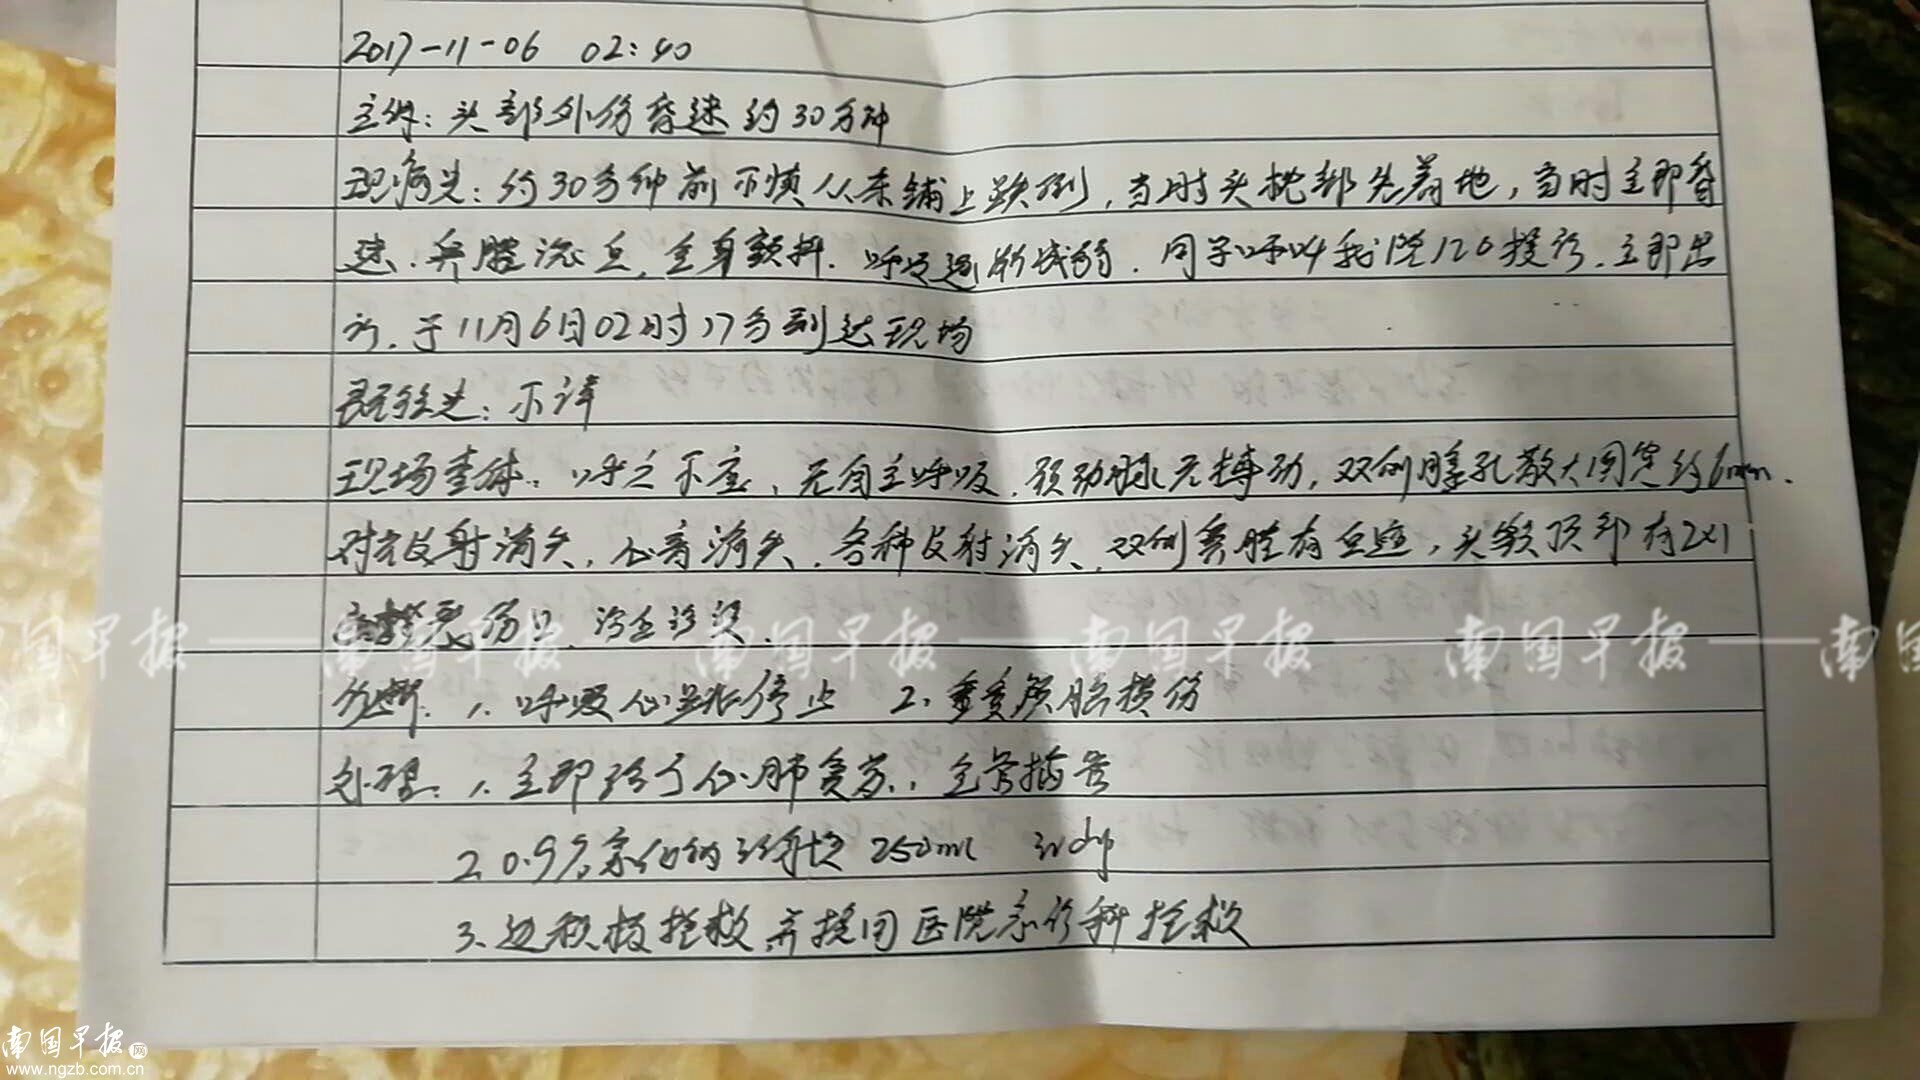 2017-11-06 02:40
主诉：头部外伤昏迷约30分钟
现病史：约30分钟前不慎从床铺上跌倒，当时头枕部先着地，当时立即昏
迷、鼻腔流血，全身颤抖，呼吸逐渐减弱，同学呼叫我院120接诊，立即出
诊，于11月6日02时17分到达现场
既往史：不详
现场查体：呼之不应，无自主呼吸，颈动脉无搏动，双侧瞳孔散大固定约6mm，
对光反射消失，心音消失，各种反射消失，双侧鼻腔有血迹，头额顶部有2×1
裂伤口
诊断：1、呼吸心跳停止 2、重度颅脑损伤
处理：1、立即给予心肺复苏，气管插管
2、0.9%氯化钠注射液 250ml ivdrip
3、边积极抢救并接回医院急诊科抢救
南国早报——南国早报——南国早报——南国早报——南国早报——南国
南国早报网
www.ngzb.com.cn